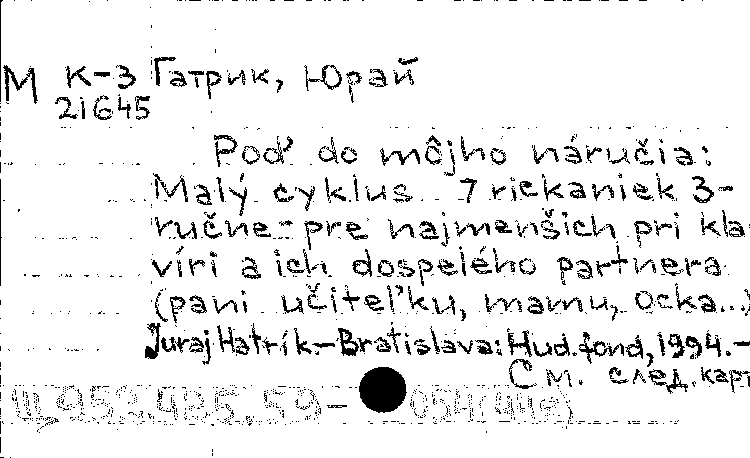 М К-3 Гатрик, Юрай
21645
Poď do môjho náručia:
Malý cyklus 7 riekaniek 3-
ručne - pre najmenších pri kla
víri a ich dospelého partnera
(pani učiteľku, mamu, ocka...)
Juraj Hatrík.-Bratislava: Hud.fond, 1994.-
См. след. карт